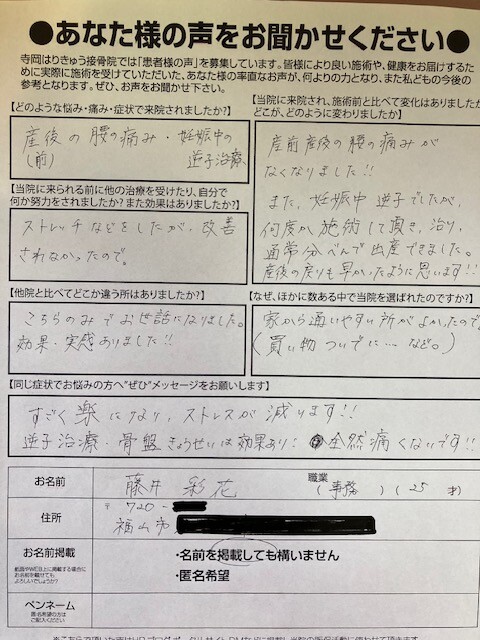 ●あなた様の声をお聞かせください●
寺岡はりきゅう接骨院では「患者様の声」を募集しています。皆様により良い施術や、健康をお届けするた
めに実際に施術を受けていただいた、あなた様の率直なお声が、何よりの力となり、また私どもの今後の
参考となります。ぜひ、お声をお聞かせ下さい。
【どのような悩み・痛み・症状で来院されましたか?】
産後の腰の痛み・妊娠中の
(前) 逆子治療
【当院に来られる前に他の治療を受けたり、自分で
何か努力をされましたか?また効果はありましたか?】
ストレッチなどをしたが、改善
されなかったので。
【当院に来院され、施術前と比べて変化はありましたか
どこが、どのように変わりましたか】
産前産後の腰の痛みが
なくなりました!!
また、妊娠中 逆子でしたが、
何度か施術して頂き、治り、
通常分べんで出産できました。
産後の戻りも早かったように思います!!
【他院と比べてどこか違う所はありましたか?】
こちらのみでお世話になりました。
効果・実感ありました!!
【なぜ、ほかに数ある中で当院を選ばれたのですか?】
家から通いやすい所がよかったので
(買い物ついでに…など。)
【同じ症状でお悩みの方へ"ぜひ"メッセージをお願いします】
すごく楽になり、ストレスが減ります!!
逆子治療・骨盤きょうせいは効果あり! 全然痛くないです!!
お名前
藤井 彩花
職業
(事務)(25才)
住所
〒720-
福山市
お名前掲載
紙面やWEB上に掲載する場合に
お名前を載せても
よろしいでしょうか?
・名前を掲載しても構いません
・匿名希望
ペンネーム
匿名希望の方は
ご記入ください